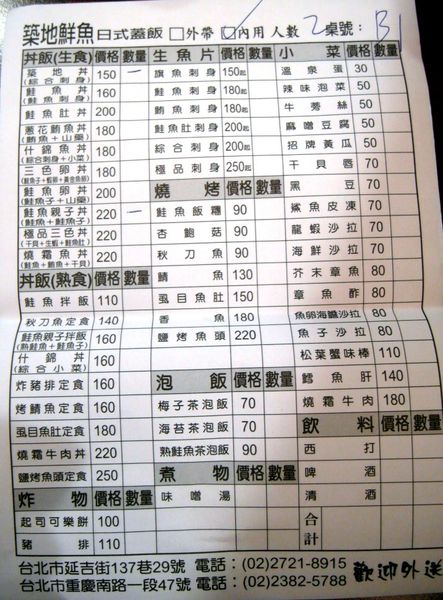 築地鮮魚 日式蓋飯 □外帶 ☑內用 人數 2 桌號: B1
丼飯(生食) 價格 數量
築地丼 (綜合刺身) 150 一
鮭魚丼 (鮭魚刺身) 160
鮭魚肚丼 200
蔥花鮪魚丼 (鮪魚+山藥) 180
什錦魚丼 (綜合刺身+小菜) 180
三色蝦丼
鮭魚卵丼 (鮭魚子+山藥) 200
鮭魚親子丼 (鮭魚+鮭魚子) 220 一
極品三色丼 (干貝+生蝦+鮭魚肚) 220
燒霜魚丼 (鮭魚+鮪魚+干貝) 220
丼飯(熟食) 價格 數量
鮭魚拌飯 110
秋刀魚定食 140
鮭魚親子拌飯 (熟鮭魚+鮭魚子) 160
什錦丼 (綜合小菜) 160
炸豬排定食 160
烤鯖魚定食 160
虱目魚肚定食 180
燒霜牛肉丼 220
鹽烤魚頭定食 250
炸物 價格 數量
起司可樂餅 100
豬排 110
生魚片 價格 數量
旗魚刺身 150起
鮭魚刺身 180起
鮪魚刺身 180起
鮭魚肚刺身 200起
綜合刺身 200起
極品刺身 250起
燒烤 價格 數量
鮭魚飯糰 90
杏鮑菇 90
秋刀魚 90
鯖魚 130
虱目魚肚 150
香魚 180
鹽烤魚頭 220
泡飯 價格 數量
梅子茶泡飯 70
海苔茶泡飯 70
熟鮭魚茶泡飯 90
煮物 價格 數量
味噌湯
小菜 價格 數量
溫泉蛋 30
辣味泡菜 50
牛蒡絲 50
麻噌豆腐 50
招牌黃瓜 50
干貝唇 70
黑豆 70
鯊魚皮凍 70
龍蝦沙拉 70
海鮮沙拉 70
芥末章魚 80
章魚酢 80
魚卵海膽沙拉 80
魚子沙拉 80
松葉蟹味棒 110
鱈魚肝 140
燒霜牛肉 180
飲料 價格 數量
西打
啤酒
清酒
合計
台北市延吉街137巷29號 電話:(02)2721-8915
台北市重慶南路一段47號 電話:(02)2382-5788
歡迎外送